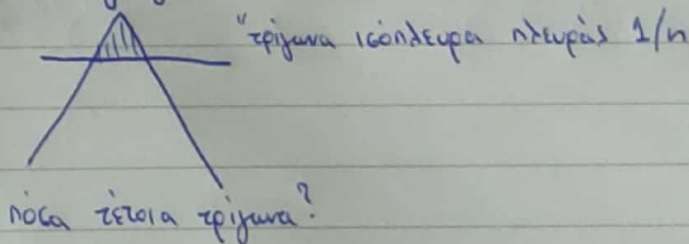 "τρίγωνα ισόπλευρα πλευράς 1/n
πόσα τέτοια τρίγωνα?